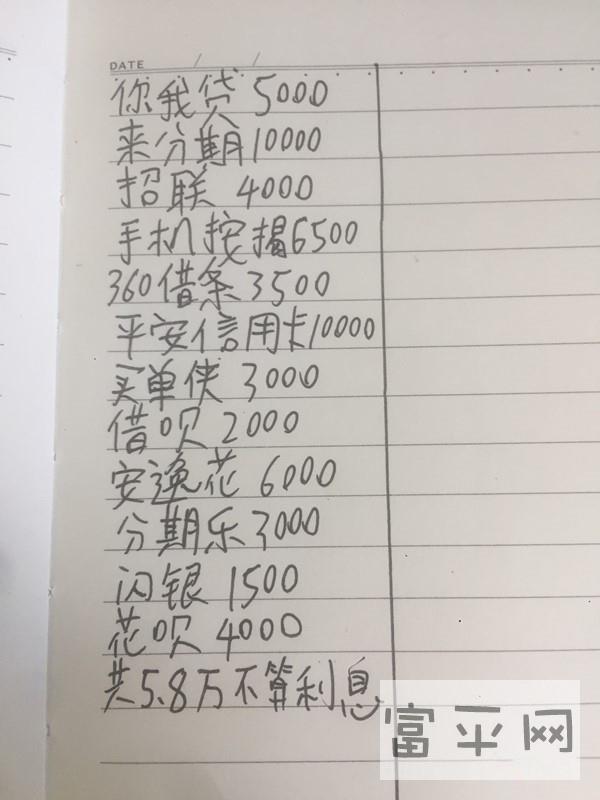 DATE / /
你我贷 5000
来分期10000
招联 4000
手机按揭6500
360借条3500
平安信用卡10000
买单侠 3000
借呗 2000
安逸花 6000
分期乐3000
闪银 1500
花呗 4000
共5.8万不算利息
富平网